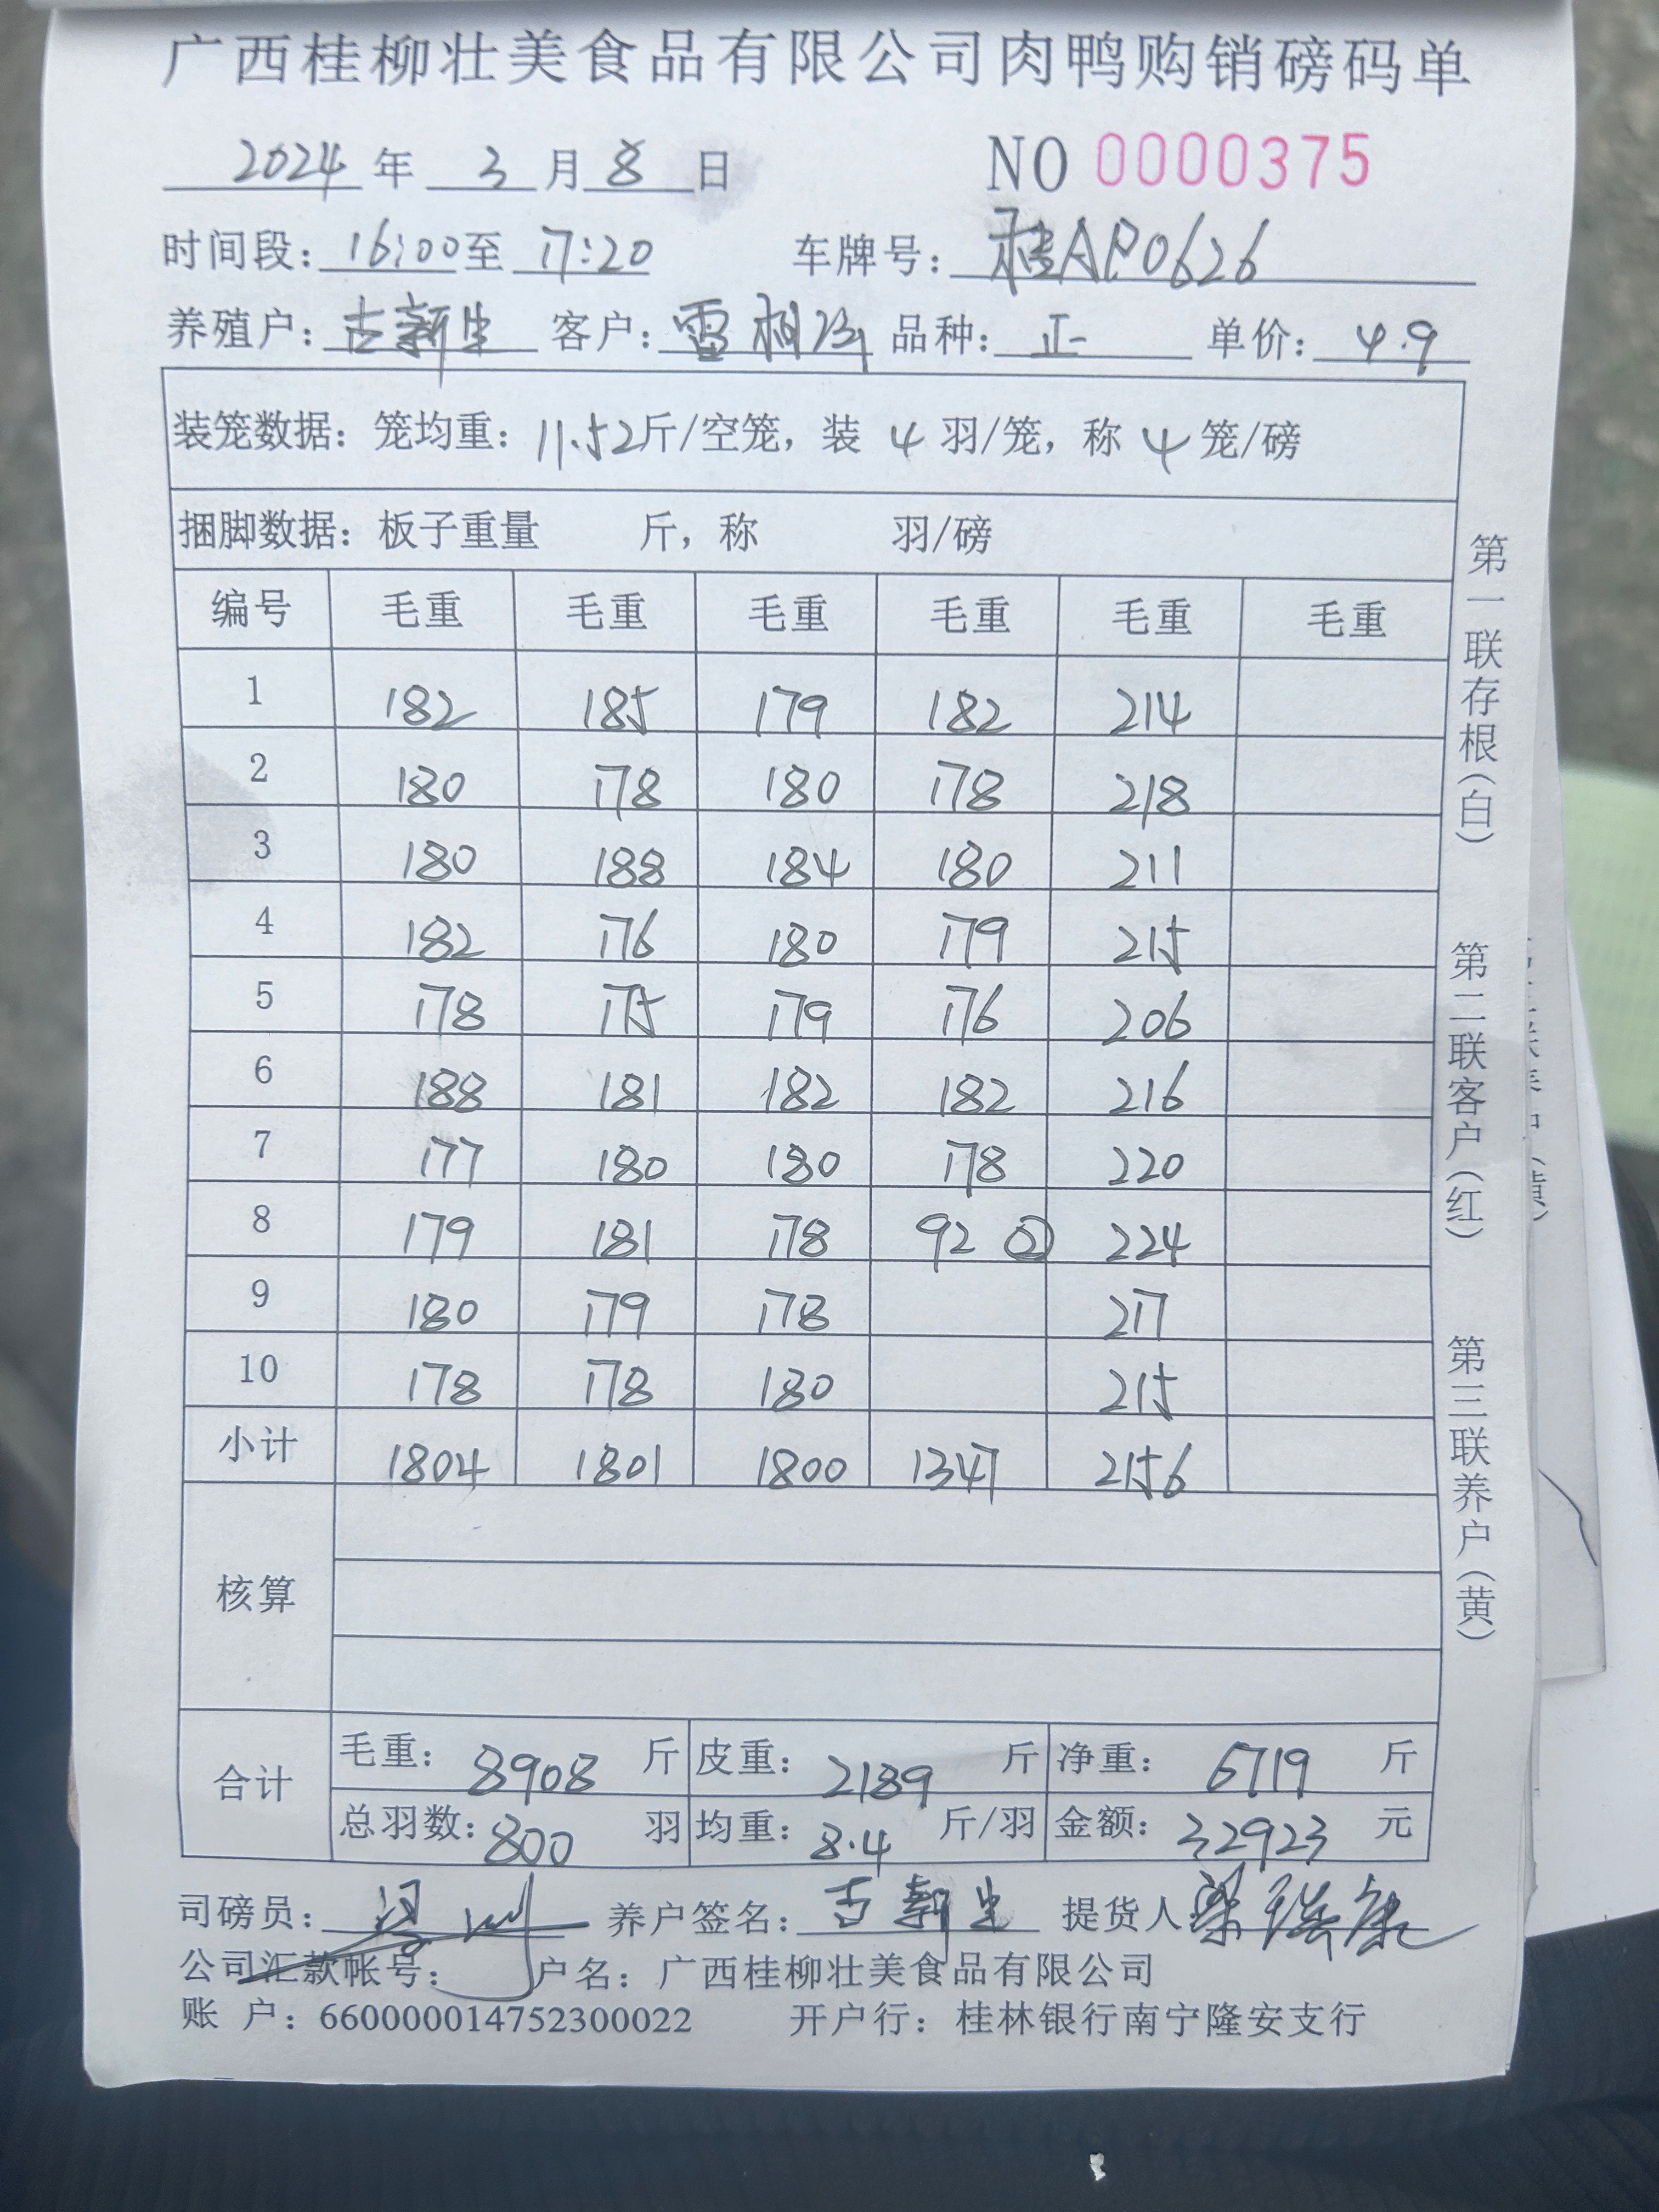 广西桂柳壮美食品有限公司肉鸭购销磅码单
2024 年 3 月 8 日 NO 0000375
时间段: 16:00 至 17:20 车牌号: 桂AP0626
养殖户: 古新生 客户: 雷相 品种: 正 单价: 4.9
装笼数据: 笼均重: 11.52斤/空笼, 装 4 羽/笼, 称 4 笼/磅
捆脚数据: 板子重量 斤, 称 羽/磅
编号 毛重 毛重 毛重 毛重 毛重 毛重
1 182 185 179 182 214
2 180 178 180 178 218
3 180 188 184 180 211
4 182 176 180 179 215
5 178 175 179 176 206
6 188 181 182 182 216
7 177 180 180 178 220
8 179 181 178 92 ② 224
9 180 179 178 217
10 178 178 180 215
小计 1804 1801 1800 1347 2156
核算
合计
毛重: 8908 斤 皮重: 2189 斤 净重: 6719 斤
总羽数: 800 羽 均重: 8.4 斤/羽 金额: 32923 元
司磅员: 养户签名: 古新生 提货人 梁瑞康
公司汇款帐号: 户名: 广西桂柳壮美食品有限公司
账 户: 660000014752300022 开户行: 桂林银行南宁隆安支行
第一联存根(白)
第二联客户(红)
第三联养户(黄)